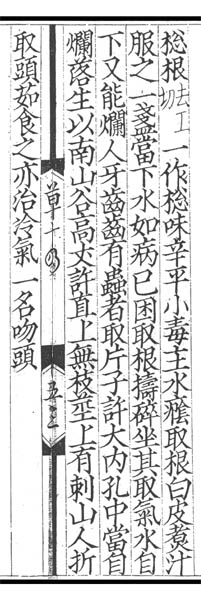 捴根去工切一作捴味辛平小毒主水癊取根白皮煮汁
服之一盞當下水如病已困取根擣碎坐其取氣水自
下又能爛人牙齒齒有蟲者取片子許大内孔中當自
爛落生以南山谷高丈許直上無枝莖上有刺山人折
草十四
取頭茹食之亦治冷氣一名吻頭